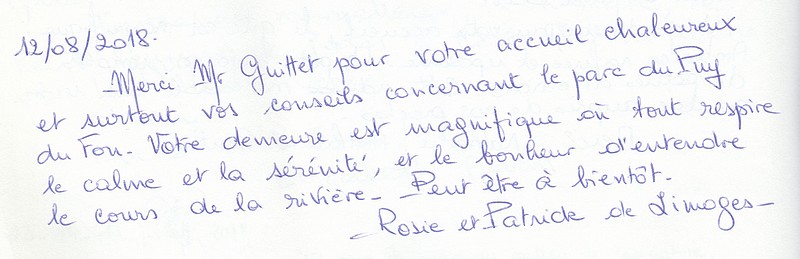 12/08/2018.
Merci Mr Guittet pour votre accueil chaleureux
et surtout vos conseils concernant le parc du Puy
du Fou. Votre demeure est magnifique où tout respire
le calme et la sérénité, et le bonheur d'entendre
le cours de la rivière. Peut être à bientôt.
Rosie et Patrick de Limoges